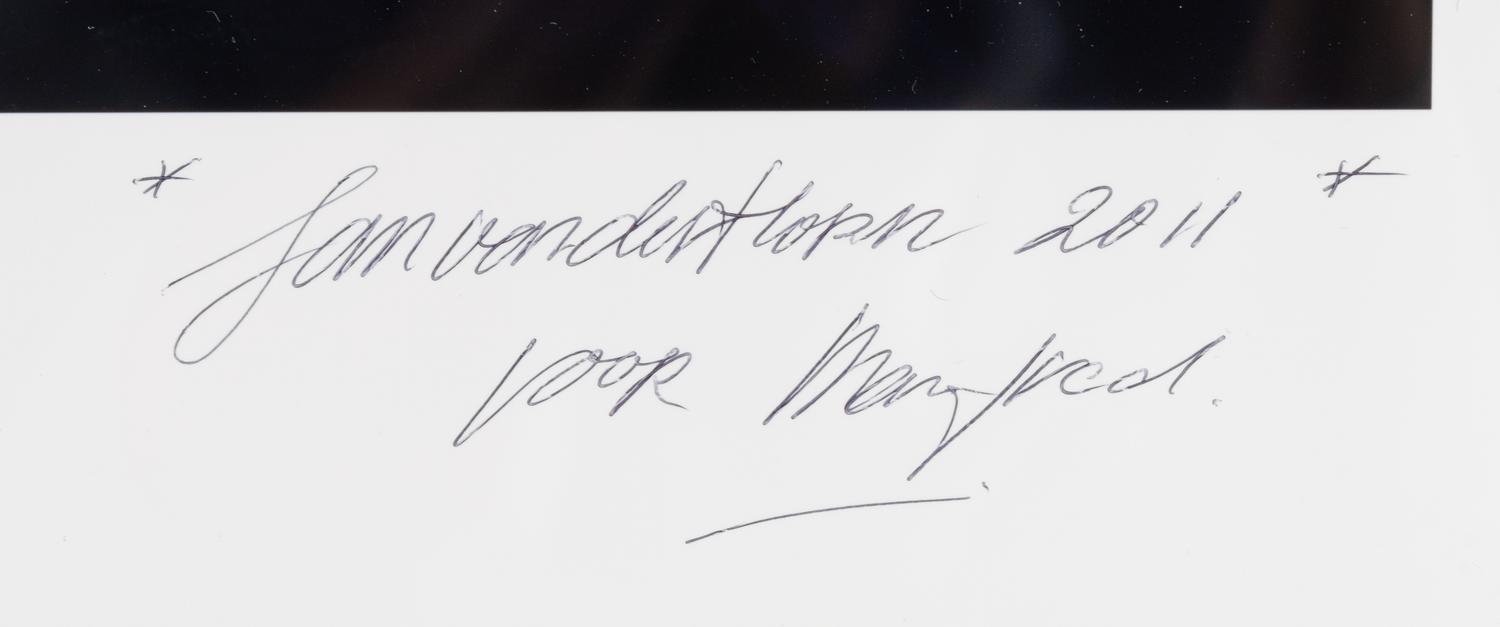 * Jan van der Horn 2011 *
voor Manfred.